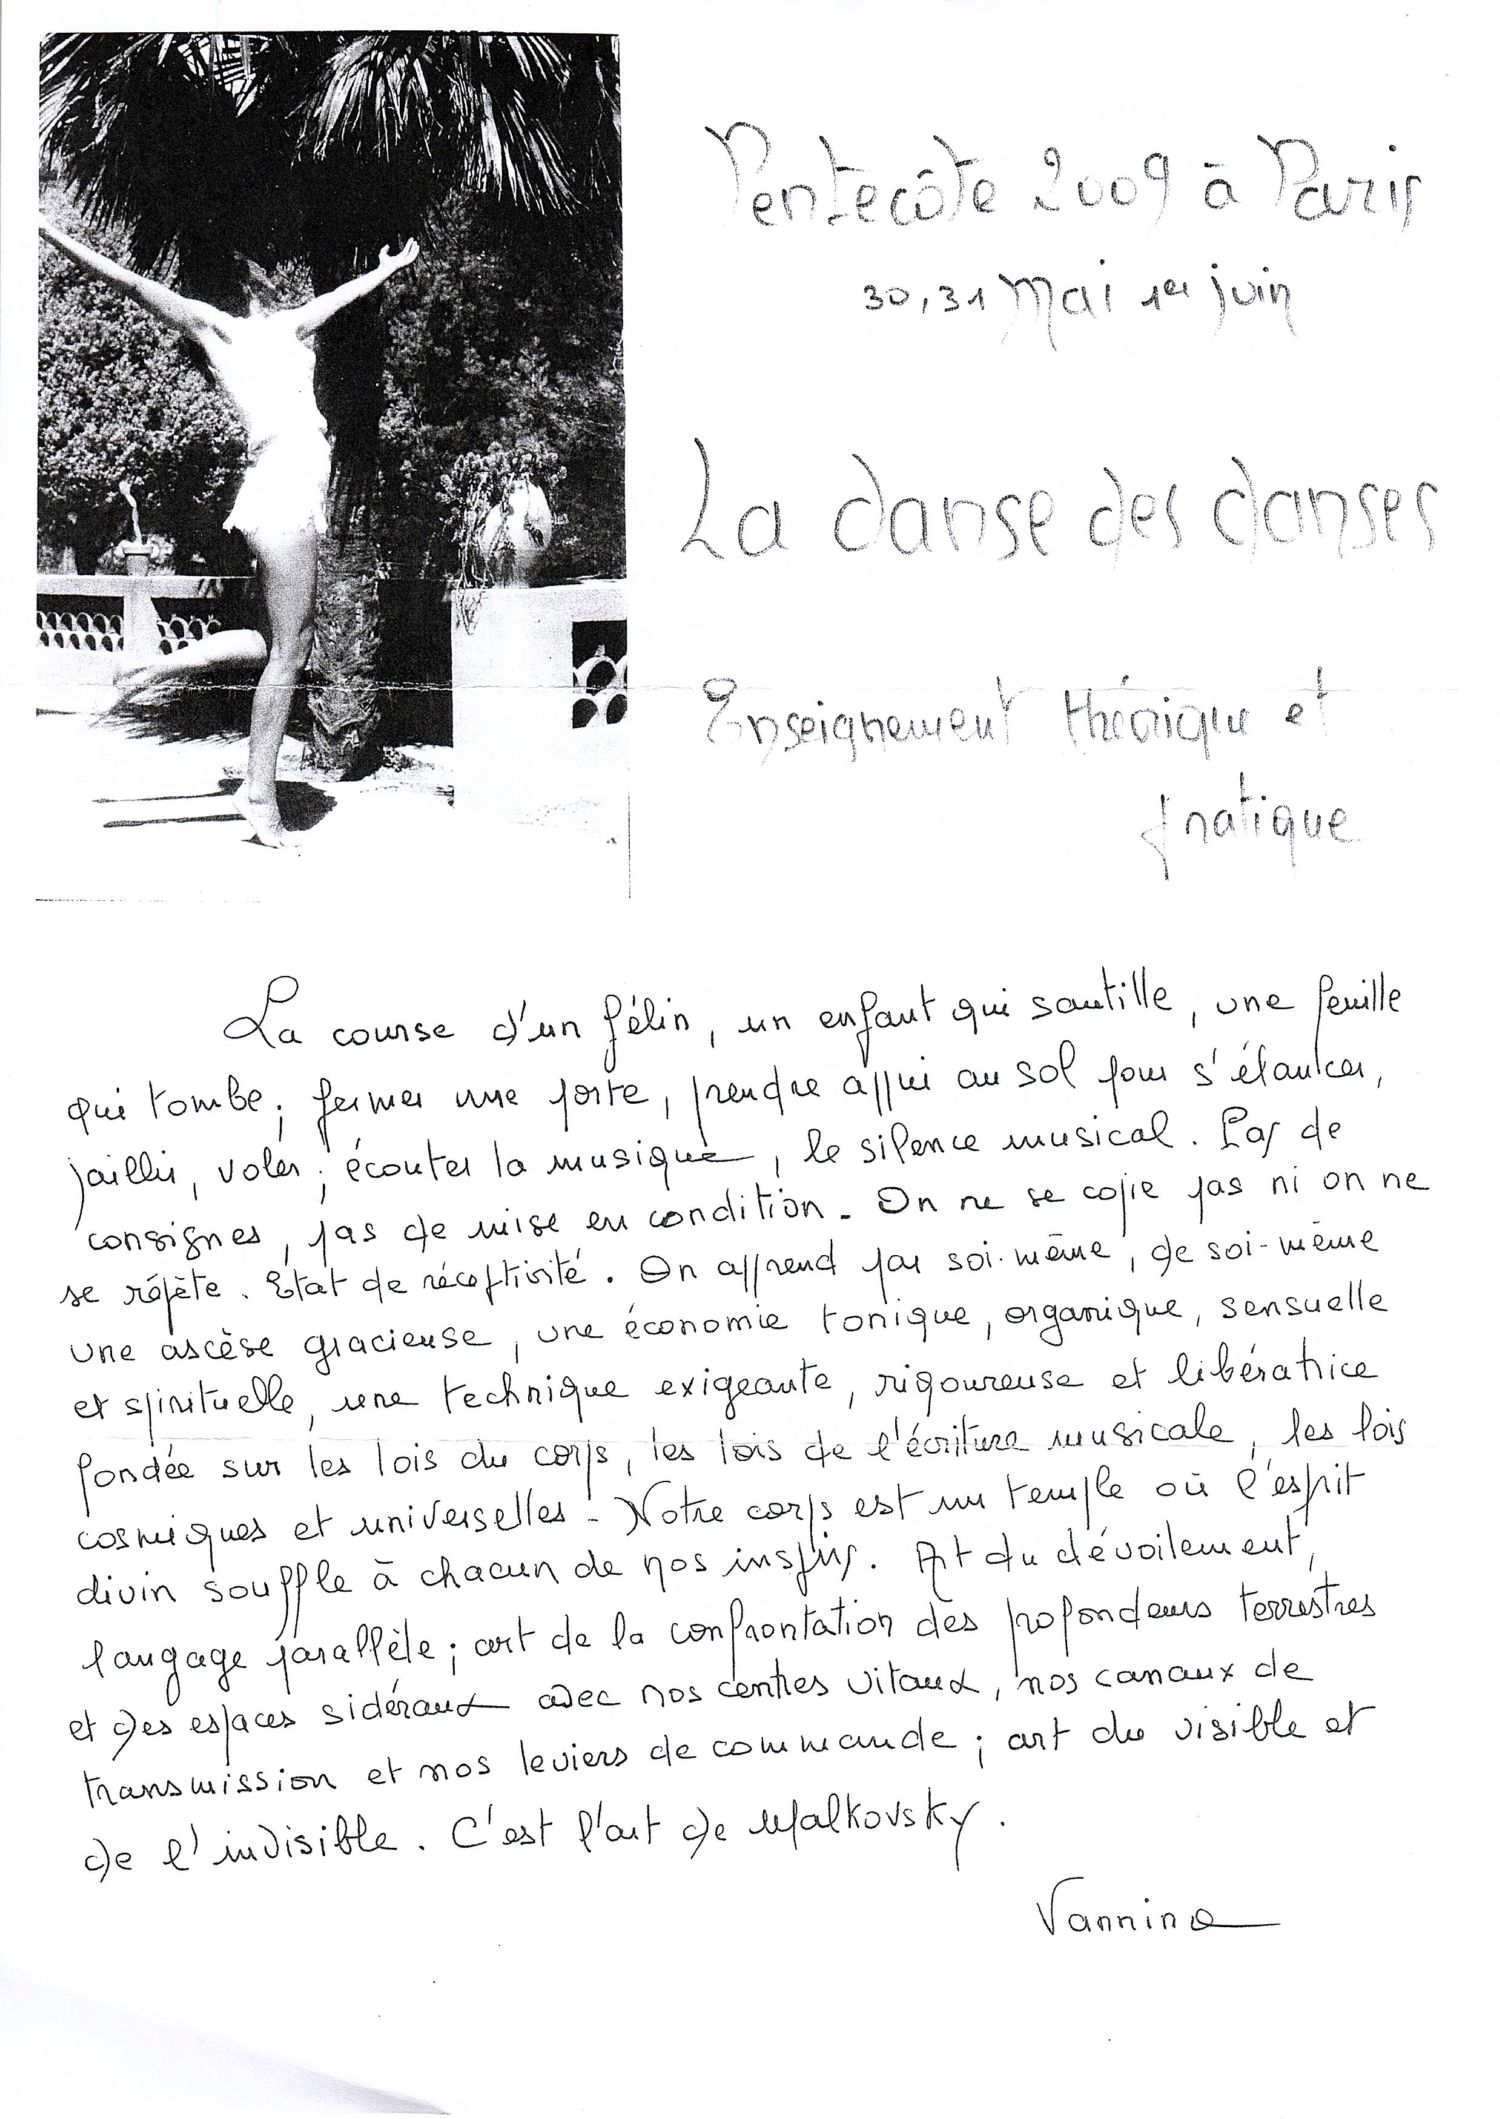 Pentecôte 2009 à Paris
30, 31 Mai 1er juin
La danse des danses
Enseignement théorique et
pratique
La course d'un félin, un enfant qui sautille, une feuille
qui tombe ; fermer une porte, prendre appui au sol pour s'élancer,
jaillir, voler ; écouter la musique, le silence musical. Pas de
consignes, pas de mise en condition. On ne se copie pas ni on ne
se répète. Etat de réceptivité. On apprend par soi-même, de soi-même
une ascèse gracieuse, une économie tonique, organique, sensuelle
et spirituelle, une technique exigeante, rigoureuse et libératrice
fondée sur les lois du corps, les lois de l'écriture musicale, les lois
cosmiques et universelles. Notre corps est un temple où l'esprit
divin souffle à chacun de nos inspirs. Art du dévoilement,
langage parallèle ; art de la confrontation des profondeurs terrestres
et des espaces sidéraux avec nos centres vitaux, nos canaux de
transmission et nos leviers de commande ; art du visible et
de l'invisible. C'est l'art de Malkovsky.
Vannina